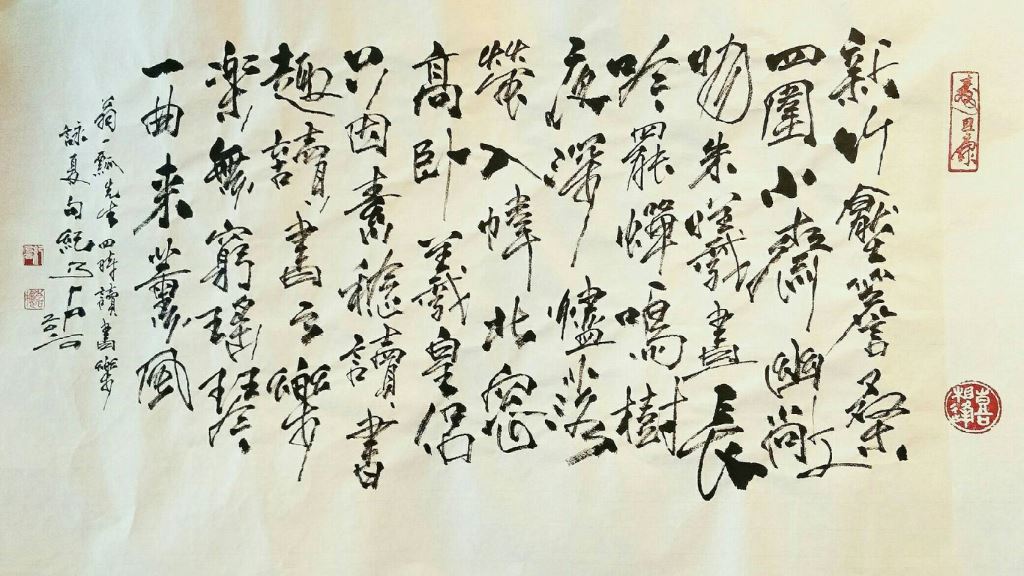 新竹壓簷桑
四圍小齋幽敞
明朱曦晝長
吟罷蟬鳴樹
夜深燼落
螢入幃北窓
高卧羲皇侣
只因素稔讀書
趣讀書之樂
楽無窮瑤琴
一曲来薰風
翁一瓢先生四時讀書樂
詠夏句